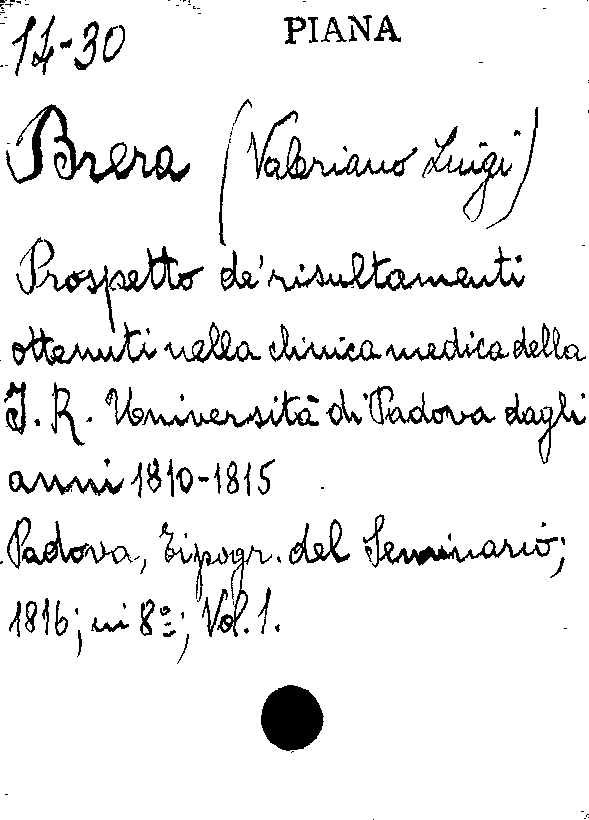 14-30
PIANA
Brera (Valeriano Luigi)
Prospetto de' risultamenti
ottenuti nella clinica medica della
I. R. Università di Padova dagli
anni 1810-1815
Padova, Tipogr. del Seminario;
1816; in 8º; Vol. 1.